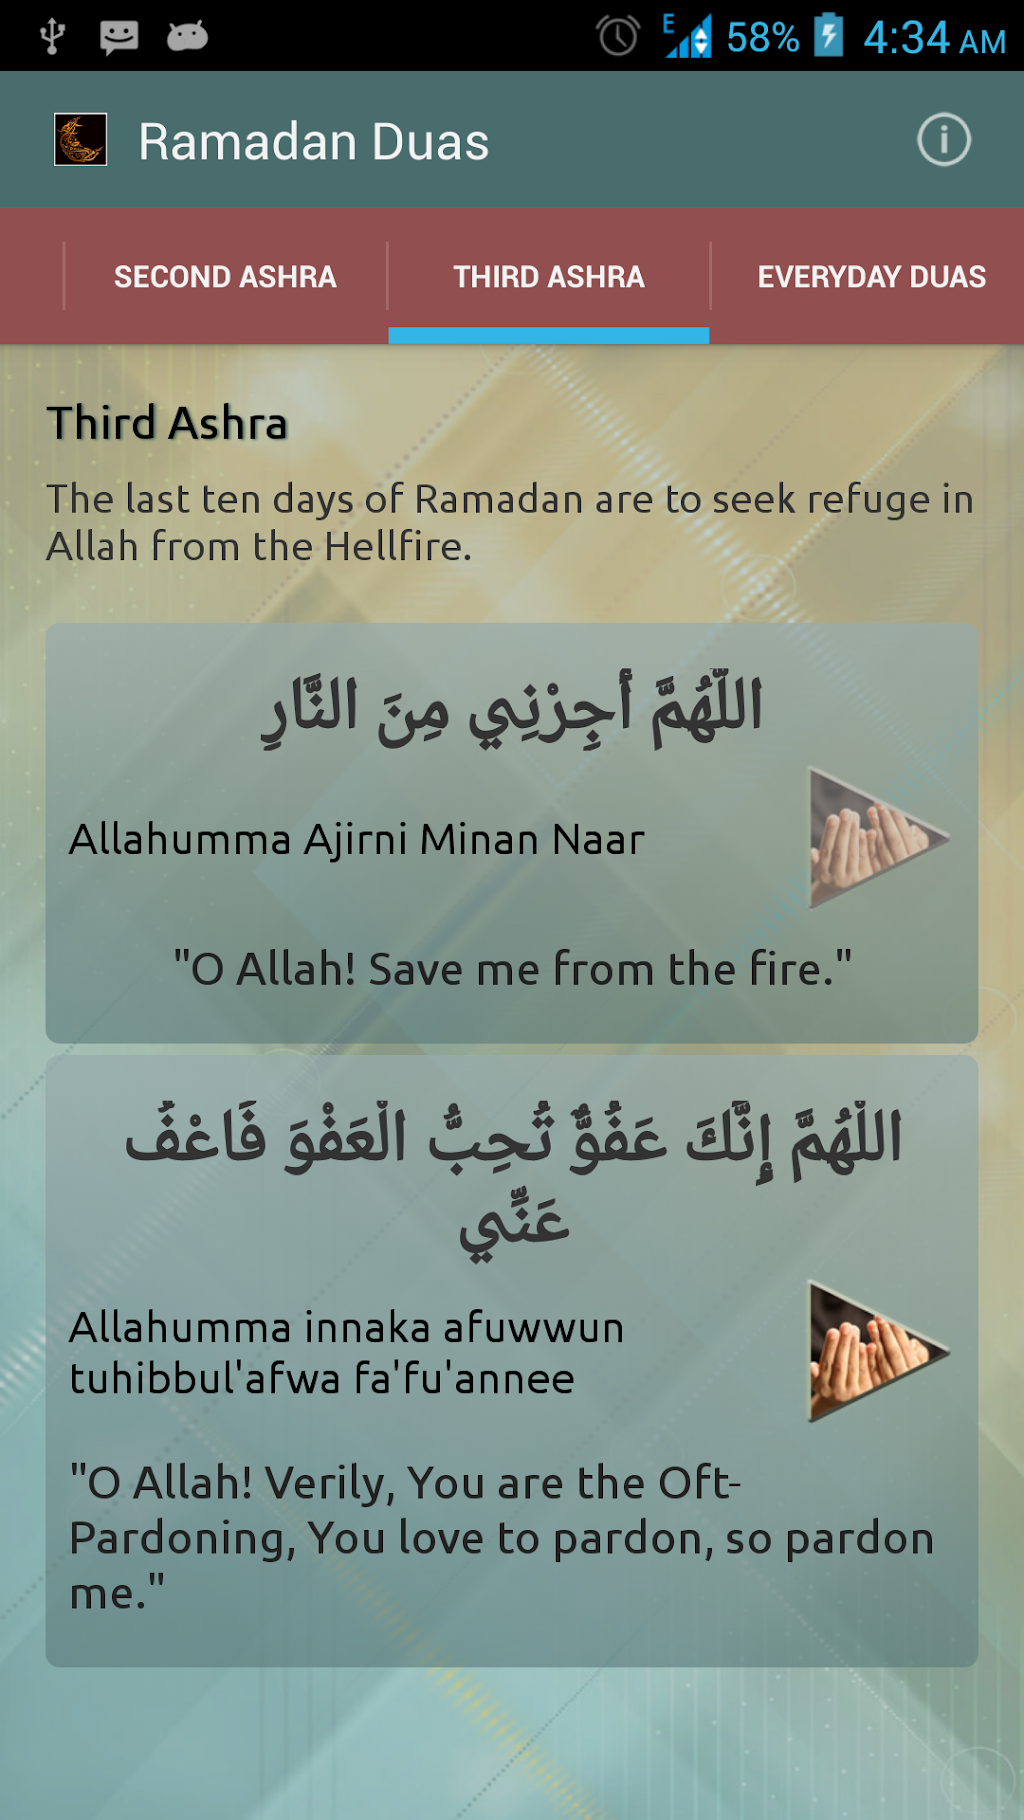 E 58% 4:34 AM
Ramadan Duas
SECOND ASHRA THIRD ASHRA EVERYDAY DUAS
Third Ashra
The last ten days of Ramadan are to seek refuge in
Allah from the Hellfire.
اللَّهُمَّ أَجِرْنِي مِنَ النَّارِ
Allahumma Ajirni Minan Naar
"O Allah! Save me from the fire."
اللَّهُمَّ إِنَّكَ عَفُوٌّ تُحِبُّ الْعَفْوَ فَاعْفُ
عَنِّي
Allahumma innaka afuwwun
tuhibbul'afwa fa'fu'annee
"O Allah! Verily, You are the Oft-
Pardoning, You love to pardon, so pardon
me."